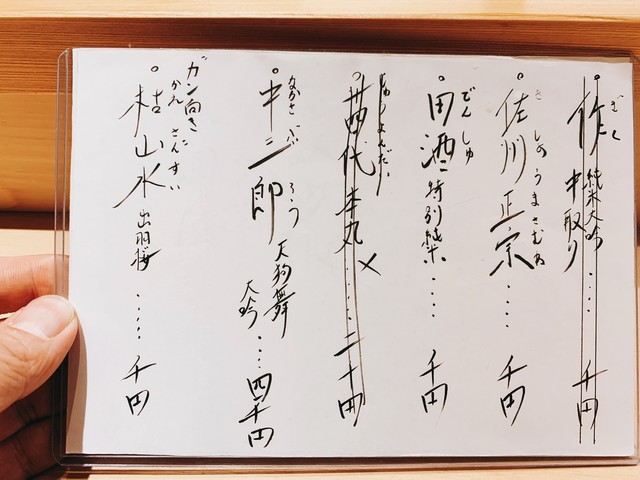 ざく
作 純米大吟 中取り ・・・・ 千円
さ しのうまさむね
佐川正宗 ・・・・ 千円
でんしゅ
田酒 特別純米 ・・・・ 千円
十四代 本丸 ・・・・ 二千円
×
なかさぶろう
中三郎 天狗舞 大吟 ・・・・ 四千円
ガン向き
かん さんすい
枯山水 出羽桜 ・・・・ 千円